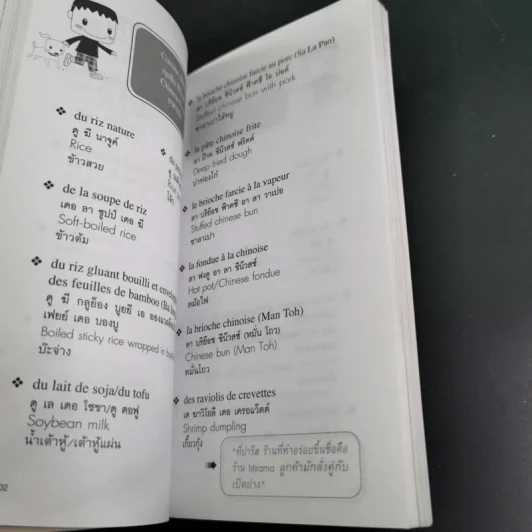 du riz nature
ดู รี นาจูค์
Rice
ข้าวสวย
de la soupe de riz
เดอ ลา ซูปป์ เดอ รี
Soft-boiled rice
ข้าวต้ม
du riz gluant bouilli et
des feuilles de bamboo
ดู รี กลูย็อง บูยยี เอ
เฟยย์ เดอ บองบู
Boiled sticky rice wrapped in
บ๊ะจ่าง
du lait de soja/du tofu
ดู เล เดอ โซชา/ดู ตอฟู
Soybean milk
น้ำเต้าหู้/เต้าหู้แผ่น
la brioche chinoise farcie au porc (Sa La Pao)
ลา บริย็อช ชีน๊วสซ์ ฟัคซี โอ ปอค์
Stuffed chinese bun with pork
ซาลาเปาไส้หมู
la pâte chinoise frite
ลา ป๊าต ชีน๊วสซ์ ฟริตต์
Deep fried dough
ปาท่องโก๋
la brioche farcie à la vapeur
ลา บริย็อช ฟัคซี อา ลา วาเปอ
Stuffed chinese bun
ซาลาเปา
la fondue à la chinoise
ลา ฟงดู อา ลา ชีน๊วสซ์
Hot pot/Chinese fondue
หม้อไฟ
la brioche chinoise (Man Toh)
ลา บริย็อช ชีน๊วสซ์ (หมั่น โถว)
Chinese bun (Man Toh)
หมั่นโถว
des raviolis de crevettes
เด ราวิโอลี เดอ เครอแว็ตต์
Shrimp dumpling
เกี๊ยวกุ้ง
*ที่ปารีส ร้านที่ทำอร่อยขึ้นชื่อคือ
ร้าน Mirama ลูกค้ามักสั่งคู่กับ
เป็ดย่าง*